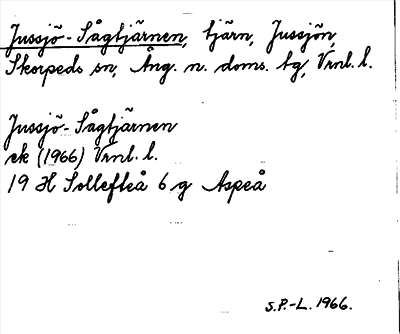 Jussjö-Sågtjärnen, tjärn, Jussjön,
Skorpeds sn, Ång. n. doms. tg, Vrnl. l.
Jussjö-Sågtjärnen
ek (1966) Vrnl. l.
19 H Sollefteå 6 g Aspeå
S.P.-L. 1966.